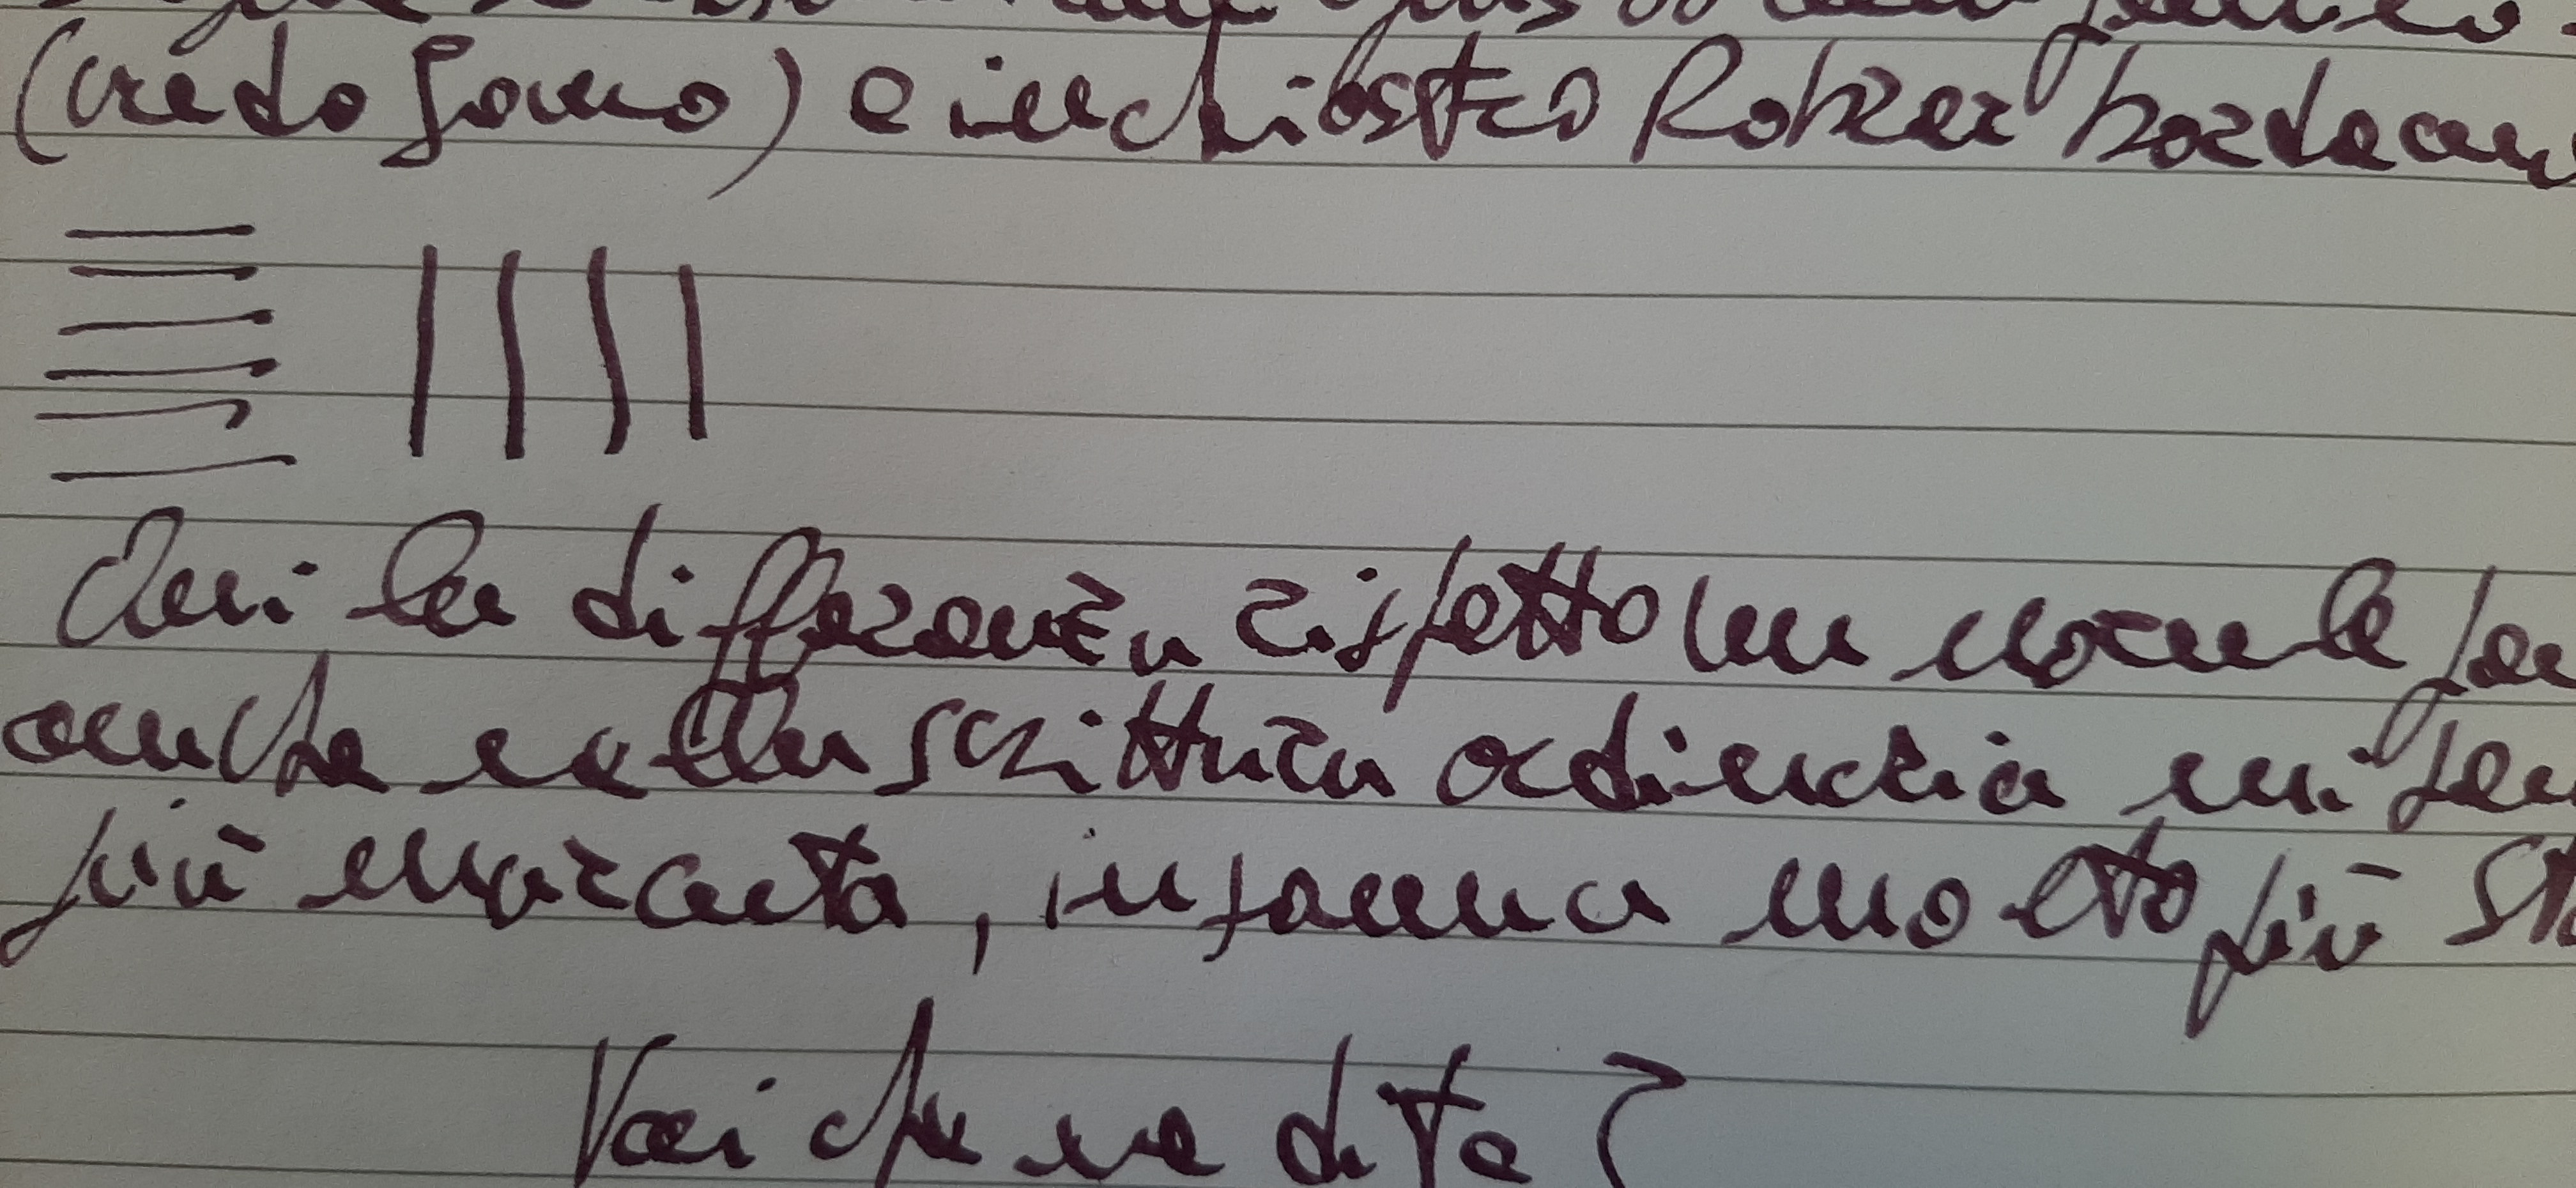 (credo Jowo) e inchiostro Rohrer bordeaux
Qui la differenza rispetto un normale
anche nella scrittura ordinaria mi
più marcata, insomma molto più
Voi che ne dite?